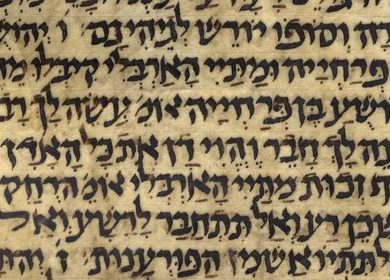 רה וסופו יורש לגיהינם ו יהוש
פרחייה ומתיי הארבלי קיבלו מ
ושע בן פרחייה אומ' עשה לך רב
נה לך חבר והוי דן את כל האדן
ת זכות מתיי הארבלי אומ' הרחק
שכן רע ואל תתחבר לרשע ואל
תתיואש מן הפורענות ז יהוד